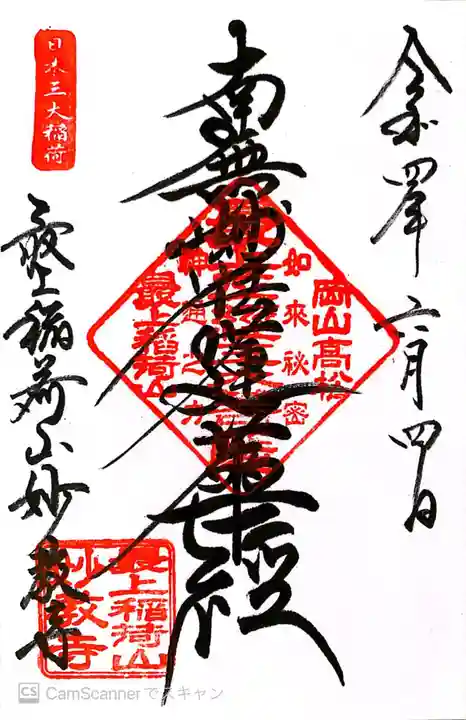 令和四年六月四日
南無妙法蓮華経
岡山高松
如来秘密
神通之力
最上稲荷山
日本三大稲荷
最上稲荷山妙教寺
最上稲荷山
妙教寺
CS CamScannerでスキャン